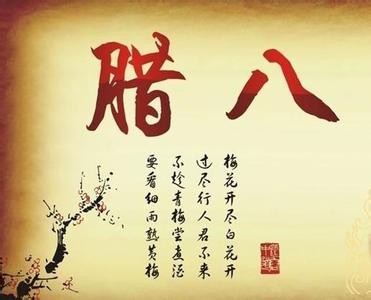 腊八
梅花开尽白花开
过尽行人君不来
不趁青梅尝煮酒
要看细雨熟黄梅